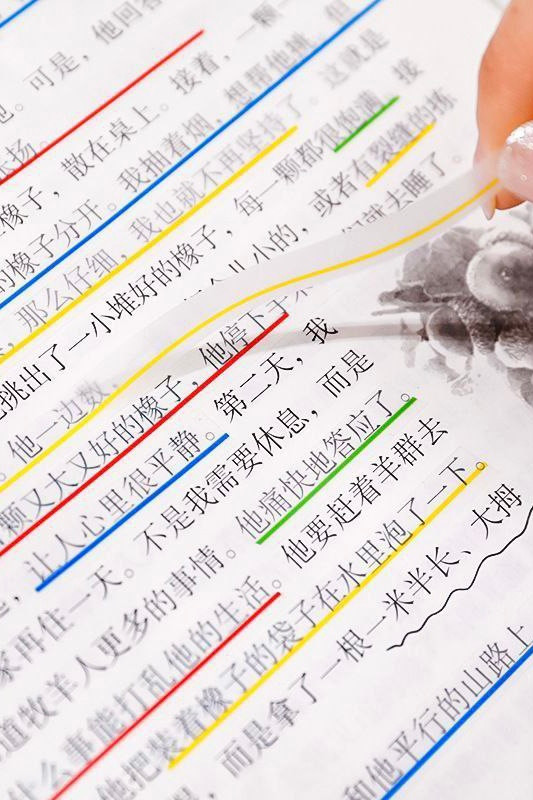 可是，他回答
，散在桌上。接着，一颗一
橡子分开。我抽着烟，想帮他挑，但
，那么仔细，我也就不再坚持了。这就是
挑出了一小堆好的橡子，每一颗都很饱满。接
他一边数，小的，或者有裂缝的栎
颗又大又好的橡子，他停下 就去睡了。
，让人心里很平静。第二天，我
家再住一天。不是我需要休息，而是
道牧羊人更多的事情。他痛快地答应了。
什么事能打乱他的生活。他要赶着羊群去
他把装着橡子的袋子在水里泡了一下。
，而是拿了一根一米半长、大拇
和他平行的山路上